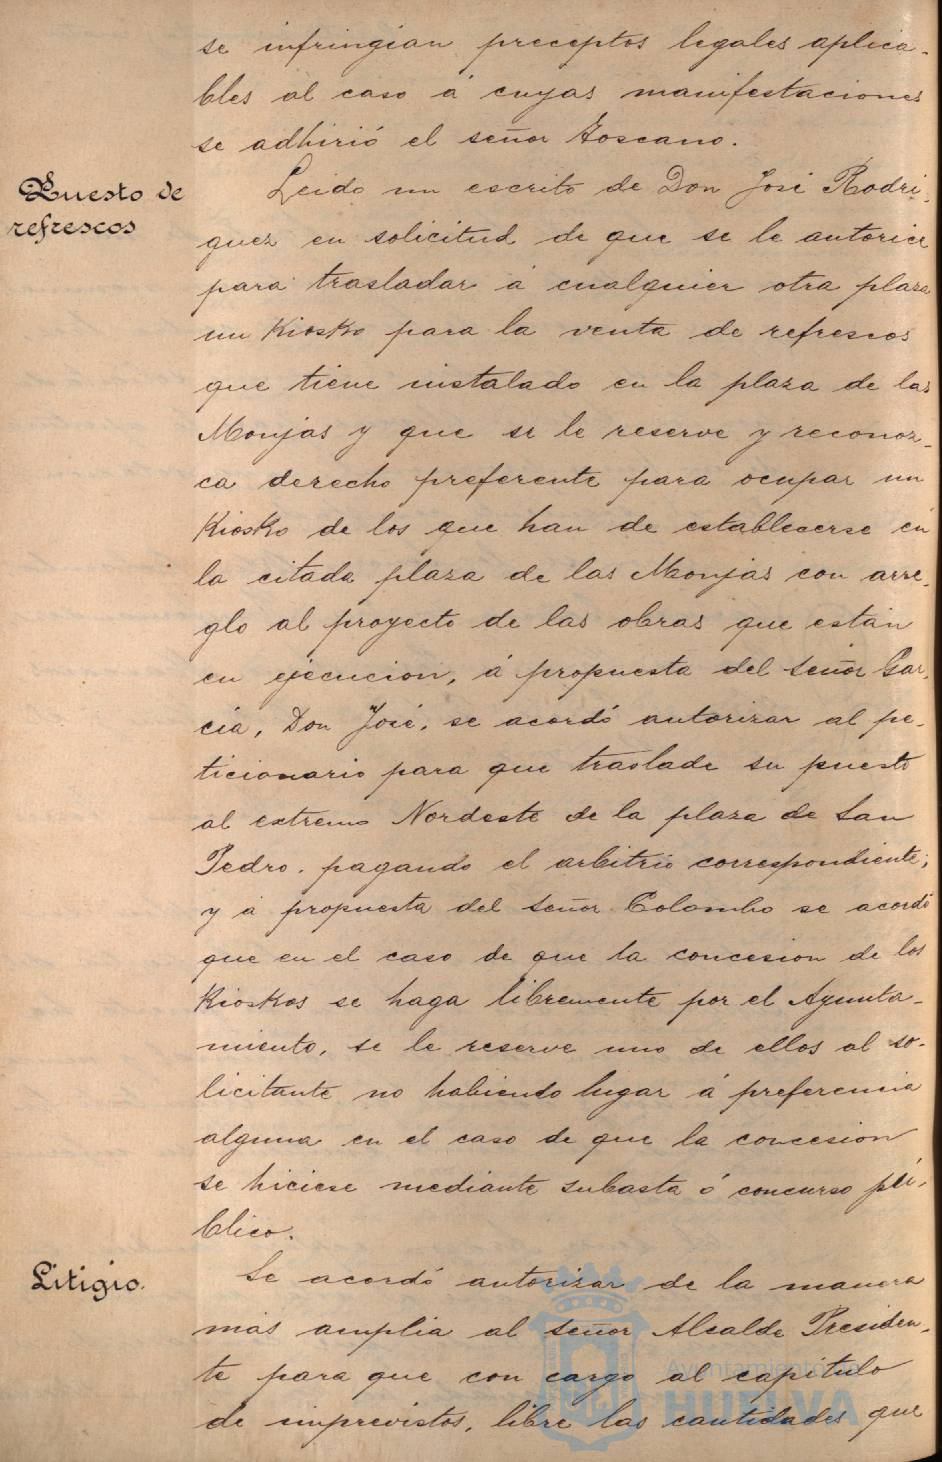 se infringian preceptos legales aplica-
bles al caso á cuyas manifestaciones
se adhirió el señor Toscano.
Puesto de
refrescos
Leido un escrito de Don José Rodri-
guez en solicitud de que se le autorice
para trasladar á cualquier otra plaza
un Kiosko para la venta de refrescos
que tiene instalado en la plaza de las
Monjas y que se le reserve y reconoz-
ca derecho preferente para ocupar un
Kiosko de los que han de establecerse en
la citada plaza de las Monjas con arre-
glo al proyecto de las obras que están
en ejecucion, á propuesta del señor Gar-
cía, Don José, se acordó autorizar al pe-
ticionario para que traslade su puesto
al extremo Nordeste de la plaza de San
Pedro. pagando el arbitrio correspondiente;
y á propuesta del señor Colombo se acordó
que en el caso de que la concesion de los
Kioskos se haga libremente por el Ayunta-
miento, se le reserve uno de ellos al so-
licitante no habiendo lugar á preferencia
alguna en el caso de que la concesion
se hiciese mediante subasta ó concurso pú-
blico.
Litigio.
Se acordó autorizar de la manera
mas amplia al señor Alcalde Presiden-
te para que con cargo al capitulo
de imprevistos, libre las cantidades que
Ayuntamiento de
HUELVA